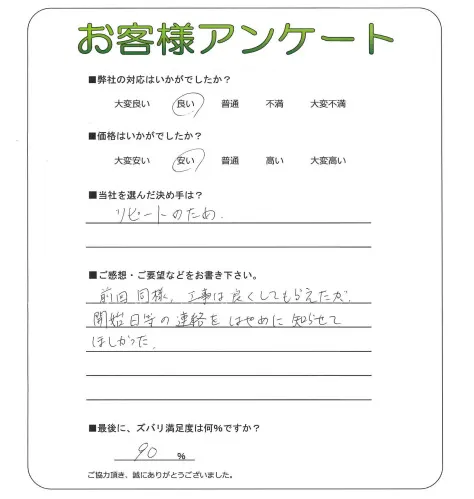 お客様アンケート
■弊社の対応はいかがでしたか?
大変良い 良い 普通 不満 大変不満
■価格はいかがでしたか?
大変安い 安い 普通 高い 大変高い
■当社を選んだ決め手は?
リピートのため.
■ご感想・ご要望などをお書き下さい。
前回同様、工事は良くしてもらえたが、
開始日等の連絡をはやめに知らせて
ほしかった.
■最後に、ズバリ満足度は何%ですか?
90 %
ご協力頂き、誠にありがとうございました。